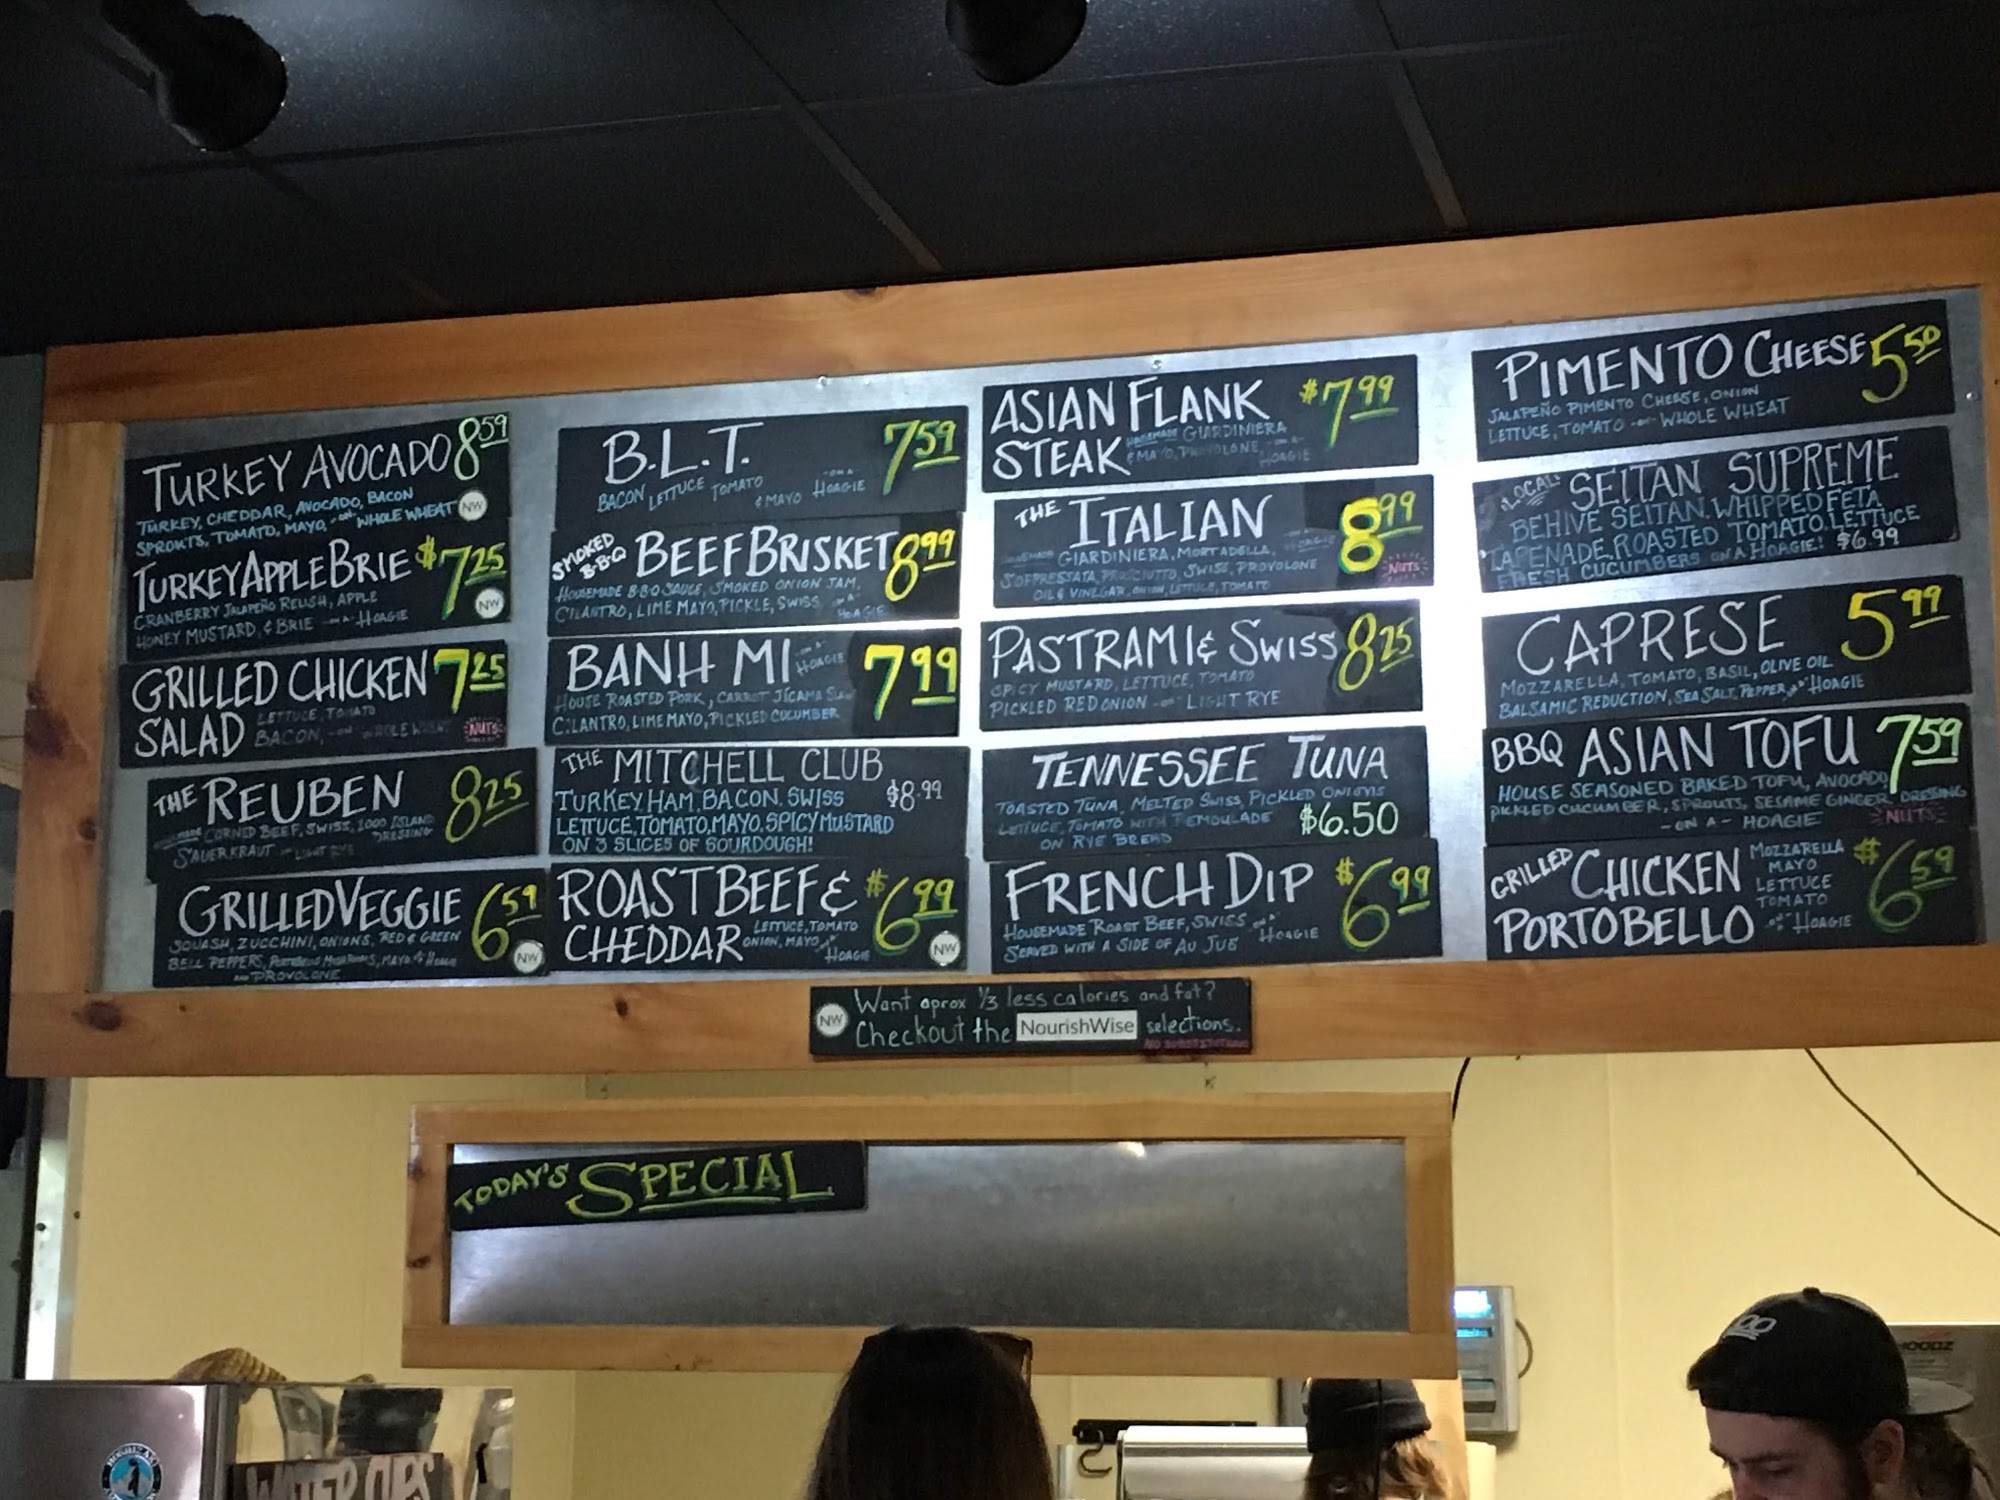 TURKEY AVOCADO 8.59
TURKEY, CHEDDAR, AVOCADO, BACON
SPROUTS, TOMATO, MAYO, -ON- WHOLE WHEAT NW
TURKEY APPLE BRIE $7.25
CRANBERRY JALAPEÑO RELISH, APPLE
HONEY MUSTARD, & BRIE -ON A- HOAGIE NW
GRILLED CHICKEN 7.25
SALAD LETTUCE, TOMATO
BACON, -ON- WHOLE WHEAT NUTS
THE REUBEN 8.25
CORNED BEEF, SWISS, 1000 ISLAND
DRESSING
SAUERKRAUT -ON- LIGHT RYE
GRILLED VEGGIE 6.59
SQUASH, ZUCCHINI, ONIONS, RED & GREEN
BELL PEPPERS, PORTOBELLO MUSHROOMS, MAYO HOAGIE
AND PROVOLONE NW
B.L.T. 7.59
BACON LETTUCE TOMATO & MAYO -ON A- HOAGIE
SMOKED B-B-Q BEEF BRISKET 8.99
HOUSEMADE B-B-Q SAUCE, SMOKED ONION JAM,
CILANTRO, LIME MAYO, PICKLE, SWISS -ON A- HOAGIE
BANH MI -ON A- HOAGIE 7.99
HOUSE ROASTED PORK, CARROT JICAMA SLAW
CILANTRO, LIME MAYO, PICKLED CUCUMBER
THE MITCHELL CLUB
TURKEY, HAM, BACON, SWISS $8.99
LETTUCE, TOMATO, MAYO, SPICY MUSTARD
ON 3 SLICES OF SOURDOUGH!
ROAST BEEF & $6.99
CHEDDAR LETTUCE, TOMATO
ONION, MAYO HOAGIE NW
ASIAN FLANK $7.99
STEAK HOMEMADE GIARDINIERA
& MAYO, PROVOLONE -ON A- HOAGIE
THE ITALIAN 8.99
GIARDINIERA, MORTADELLA, HOAGIE
SOPPRESSATA, PROSCIUTTO, SWISS, PROVOLONE NUTS
OIL & VINEGAR, ONION, LETTUCE, TOMATO
PASTRAMI & SWISS 8.25
SPICY MUSTARD, LETTUCE, TOMATO
PICKLED RED ONION -ON- LIGHT RYE
TENNESSEE TUNA
TOASTED TUNA, MELTED SWISS, PICKLED ONIONS
LETTUCE, TOMATO WITH REMOULADE $6.50
ON RYE BREAD
FRENCH DIP $6.99
HOUSEMADE ROAST BEEF, SWISS -ON A- HOAGIE
SERVED WITH A SIDE OF AU JUS
PIMENTO CHEESE 5.50
JALAPEÑO PIMENTO CHEESE, ONION
LETTUCE, TOMATO -ON- WHOLE WHEAT
LOCAL! SEITAN SUPREME
BEHIVE SEITAN, WHIPPED FETA,
TAPENADE, ROASTED TOMATO, LETTUCE
FRESH CUCUMBERS ON A HOAGIE! $6.99
CAPRESE 5.99
MOZZARELLA, TOMATO, BASIL, OLIVE OIL
BALSAMIC REDUCTION, SEA SALT, PEPPER HOAGIE
BBQ ASIAN TOFU 7.59
HOUSE SEASONED BAKED TOFU, AVOCADO
PICKLED CUCUMBER, SPROUTS, SESAME GINGER DRESSING
-ON A- HOAGIE NUTS
GRILLED CHICKEN PORTOBELLO $6.59
MOZZARELLA
MAYO
LETTUCE
TOMATO
HOAGIE
NW Want aprox 1/3 less calories and fat?
Checkout the NourishWise selections.
NO SUBSTITUTIONS
TODAY'S SPECIAL
WATER CUPS